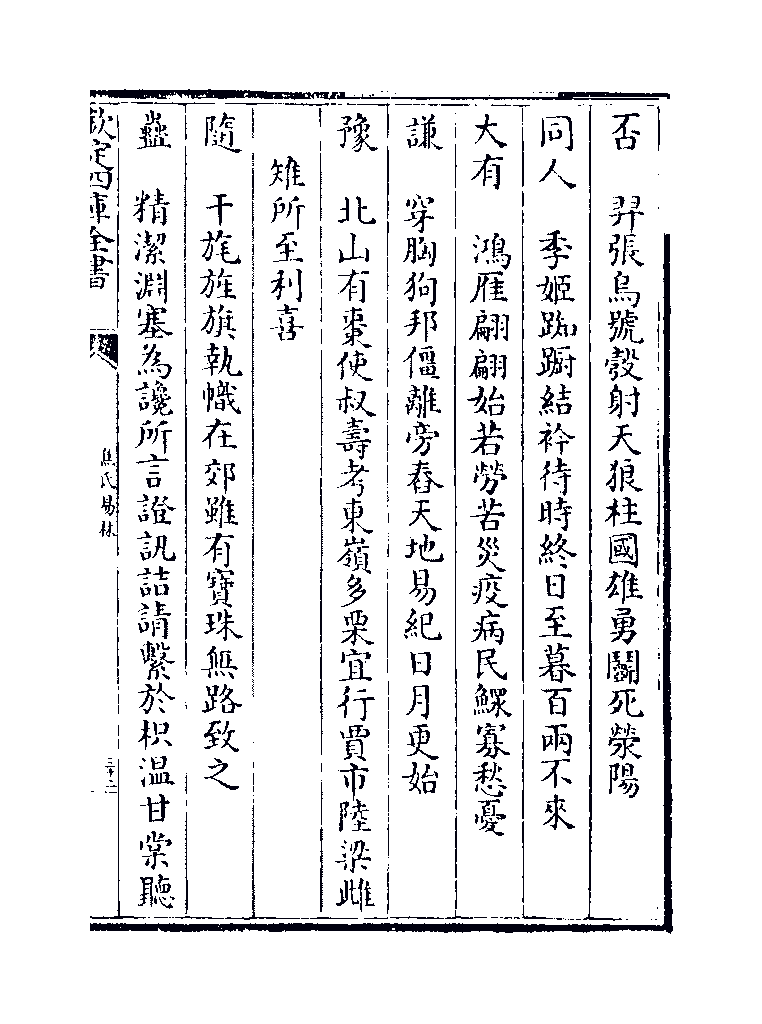 否　羿張烏號彀射天狼柱國雄勇鬭死滎陽
同人　季姬踟躕結衿待時終日至暮百兩不來
大有　鴻雁翩翩始若勞苦災疫病民鰥寡愁憂
謙　穿胸狗邦僵離旁舂天地易紀日月更始
豫　北山有棗使叔壽考東嶺多栗宜行賈市陸梁雌
雉所至利喜
隨　干旄旌旗執幟在郊雖有寶珠無路致之
蠱　精潔淵塞為讒所言證訊詰請繫於枳溫甘棠聽
欽定四庫全書
焦氏易林
三十二